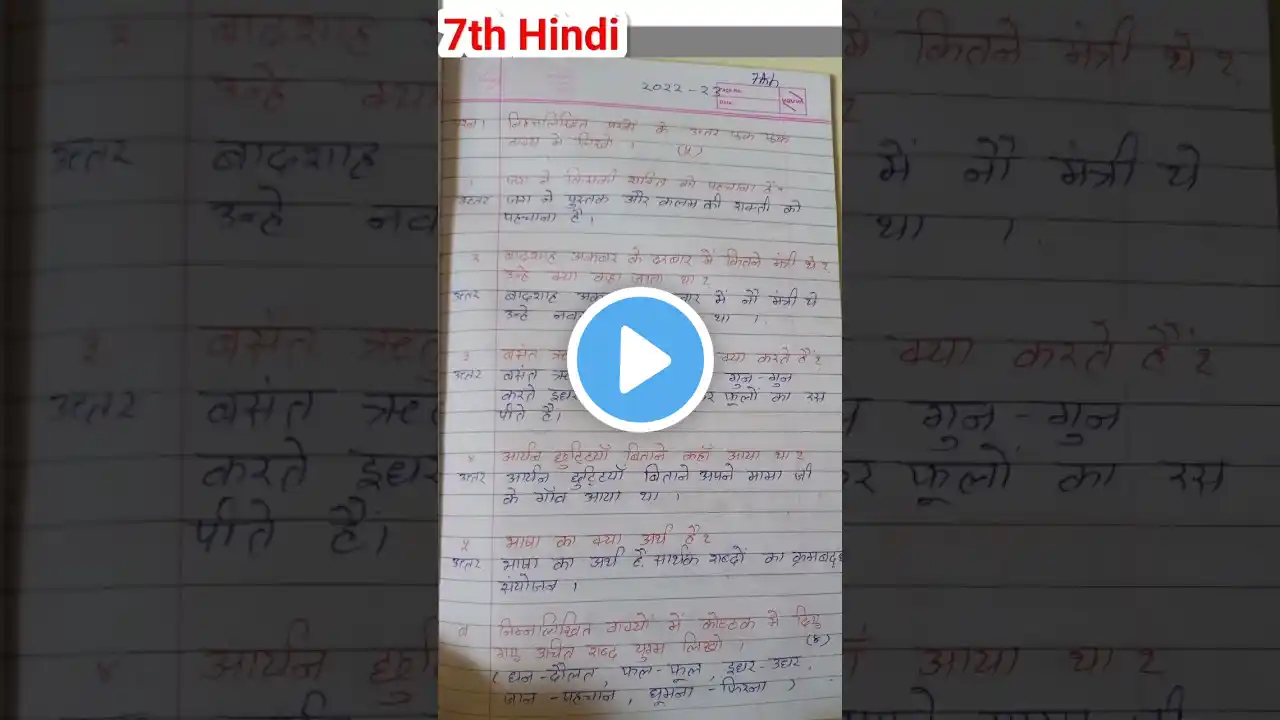 7th Hindi
7th
२०२२ - २३
Page No.
Date
प्रश्न १ निम्नलिखित प्रश्नों के उत्तर एक एक
वाक्य में लिखो । (५)
१ जग ने किसकी शक्ति को पहचाना है ?
उत्तर जग ने पुस्तक और कलम की शक्ती को
पहचाना है ।
२ बादशाह अकबर के दरबार में कितने मंत्री थे ?
उन्हे क्या कहा जाता था ?
उत्तर बादशाह में नौ मंत्री थे
उन्हे था ।
३ बसंत क्या करते हैं ?
उत्तर बसंत गुन - गुन
करते फूलों का रस
पीते है।
४ आर्यन छुट्टियाँ बिताने कहाँ आया था ?
उत्तर आर्यन छुट्टियाँ बिताने अपने मामा जी
के गाँव आया था ।
५ भाषा का क्या अर्थ है ?
उत्तर भाषा का अर्थ है सार्थक शब्दों का क्रमबद्ध
संयोजन ।
ब निम्नलिखित वाक्यों में कोष्टक में दिए
गए उचित शब्द युग्म लिखो । (४)
( धन - दौलत , फल - फूल , इधर - उधर ,
जान - पहचान , घूमना - फिरना )